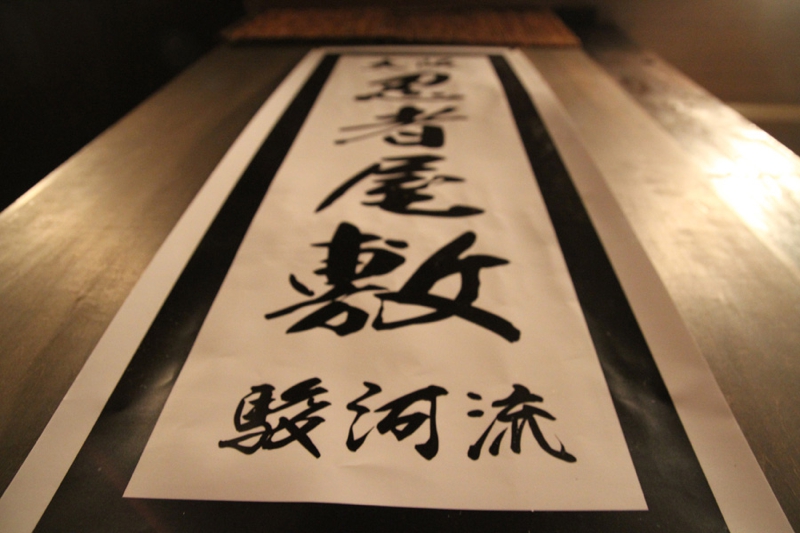 忍者屋敷
駿河流